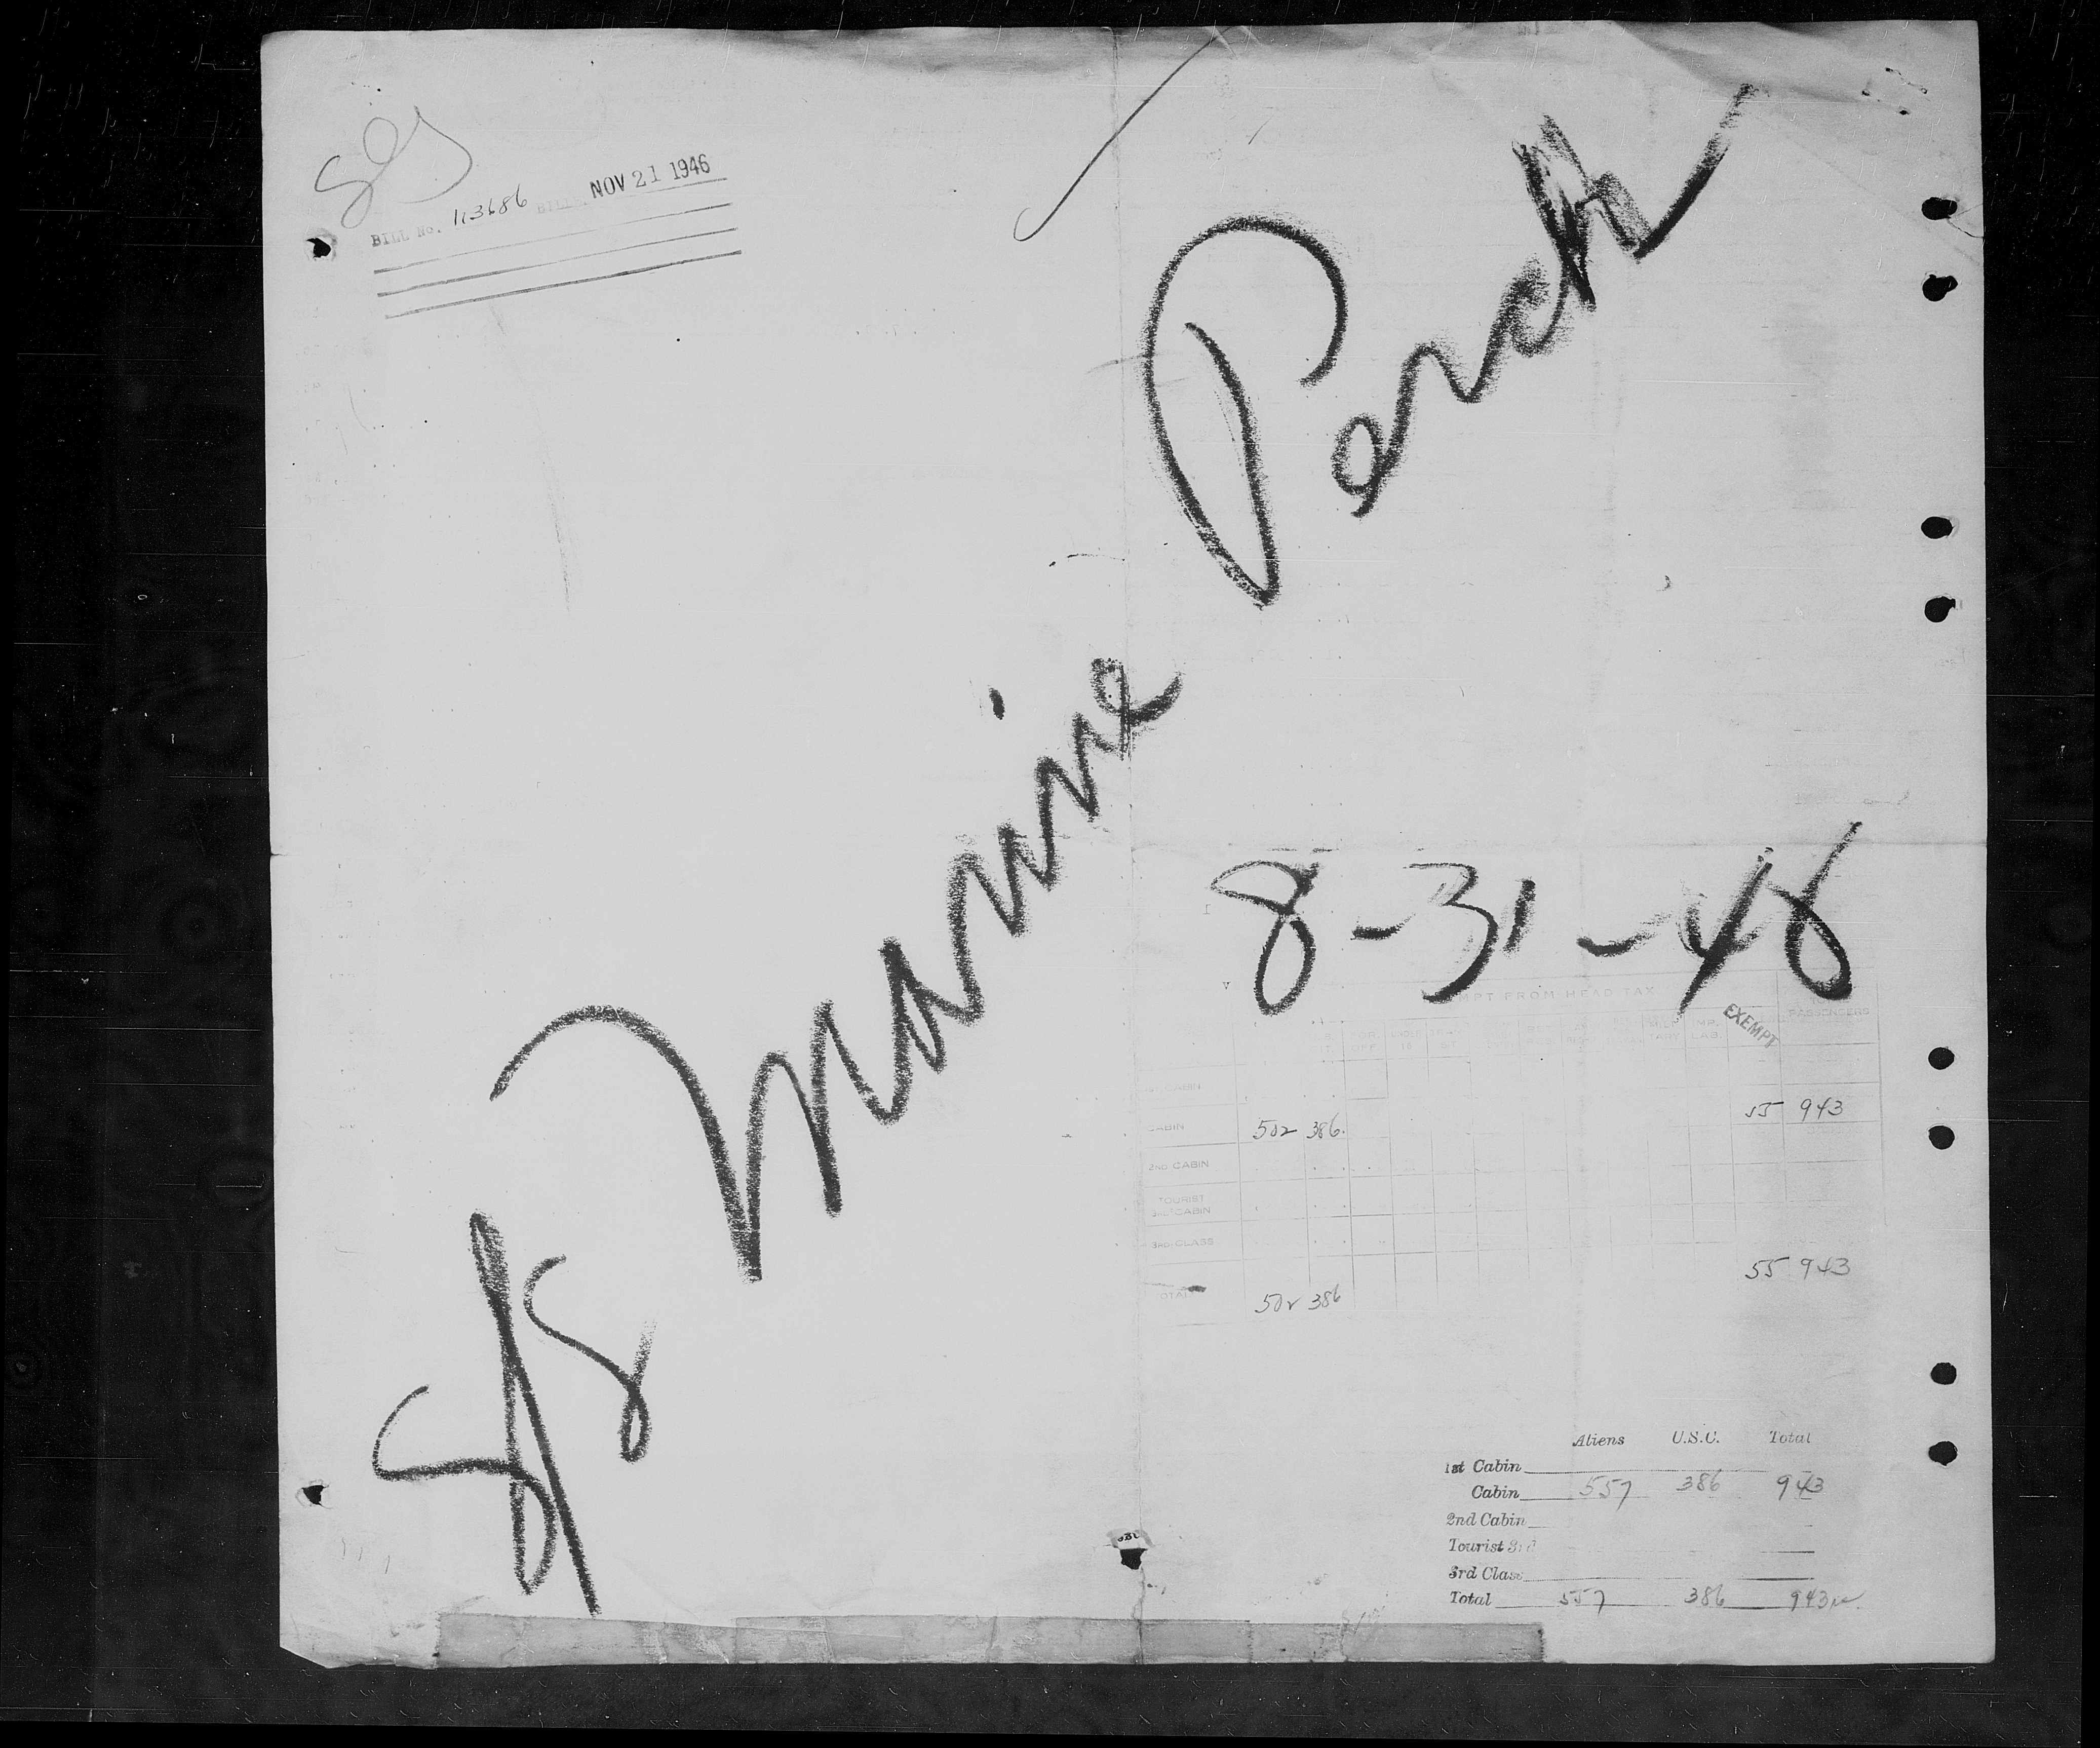 BILL No. 113686 BILLED NOV 21 1946
S/S Marine Perch
8-31-46
EMPT FROM HEAD TAX
EXEMPT
PASSENGERS
CABIN 502 386 55 943
2ND CABIN
TOURIST
3RD CABIN
3RD CLASS
TOTAL 502 386 55 943
Aliens U.S.C. Total
1st Cabin
Cabin 557 386 943
2nd Cabin
Tourist 3rd
3rd Class
Total 557 386 943